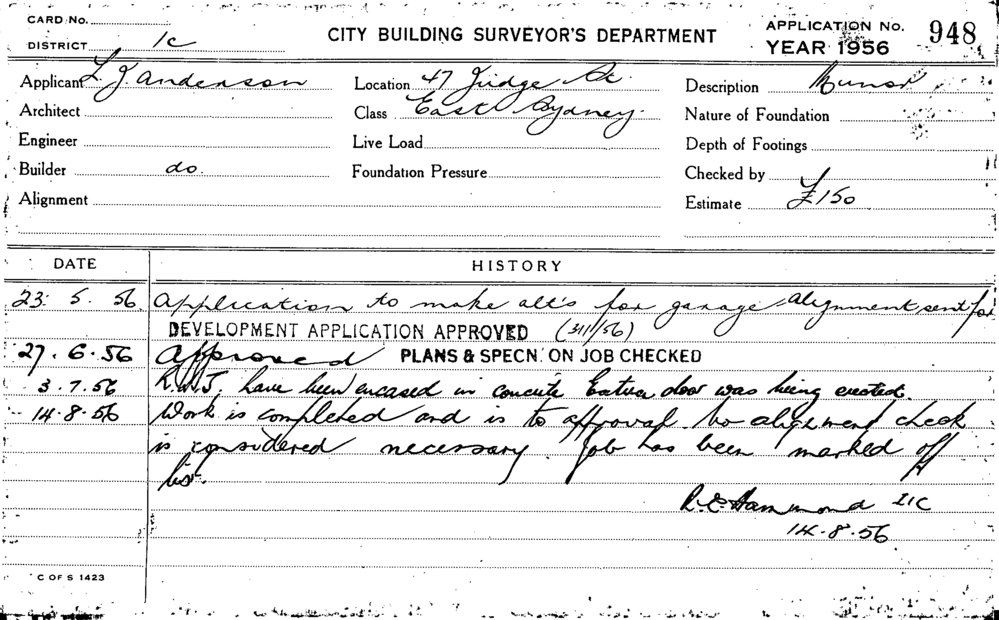 CARD No.
DISTRICT 1c
CITY BUILDING SURVEYOR'S DEPARTMENT
APPLICATION No. 948
YEAR 1956
Applicant L. J. Anderson
Location 47 Judge St.
Description Minor
Architect
Class East Sydney.
Nature of Foundation
Engineer
Live Load
Depth of Footings
Builder do.
Foundation Pressure
Checked by
Alignment
Estimate £150
DATE HISTORY
23. 5. 56 Application to make alt's for garage alignment sent for
DEVELOPMENT APPLICATION APPROVED (311/56)
27. 6. 56 Approved PLANS & SPECN. ON JOB CHECKED
3. 7. 56 R.S.J. have been encased in concrete Extra door was being erected.
14. 8. 56 Work is completed and is to approval. No alignment check
is considered necessary. Job has been marked off
list.
R. E. Hammond 21C
14. 8. 56
C OF S 1423